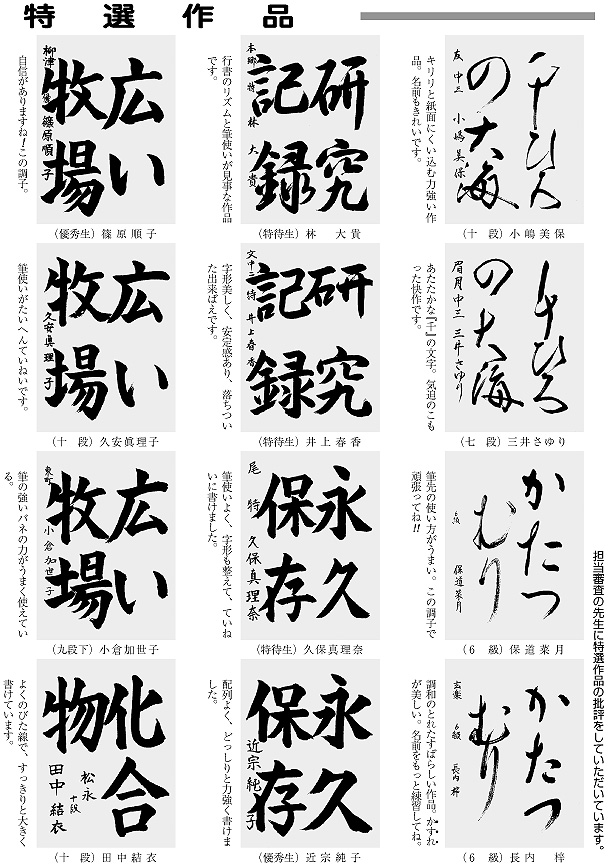 特選作品
担当審査の先生に特選作品の批評をしていただいています。
千ひろ
の大海
友 中三 小嶋美保
キリリと紙面にくい込む力強い作
品。名前もきれいです。
（十 段）小嶋美保
研究
記録
本郷 特 林 大貴
行書のリズムと筆使いが見事な作品
です。
（特待生）林 大貴
広い
牧場
柳津 篠原順子
自信がありますね！この調子。
（優秀生）篠原順子
千ひろ
の大海
眉月 中三 三井さゆり
あたたかな『千』の文字。気迫のこも
った快作です。
（七 段）三井さゆり
研究
記録
文中二 特 井上春香
字形美しく、安定感あり、落ちつい
た出来ばえです。
（特待生）井上春香
広い
牧場
久安真理子
筆使いがたいへんていねいです。
（十 段）久安眞理子
かたつ
むり
6級 保道菜月
筆先の使い方がうまい。この調子で
頑張ってね!!
（6 級）保道菜月
永久
保存
尾 特 久保真理奈
筆使いよく、字形も整えて、ていね
いに書けました。
（特待生）久保真理奈
広い
牧場
東町 小倉加世子
筆の強いバネの力がうまく使えてい
る。
（九段下）小倉加世子
かたつ
むり
玄樂 6級 長内梓
調和のとれたすばらしい作品。かすれ
が美しい。名前をもっと練習してね。
（6 級）長内 梓
永久
保存
近宗純子
配列よく、どっしりと力強く書けま
した。
（優秀生）近宗純子
化合
物
松永 十段
田中結衣
よくのびた線で、すっきりと大きく
書けています。
（十 段）田中結衣